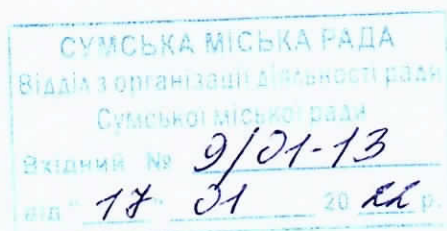 СУМСЬКА МІСЬКА РАДА
Відділ з організації діяльності ради
Сумської міської ради
Вхідний № 9/01-13
від "17" 01 2022 р.